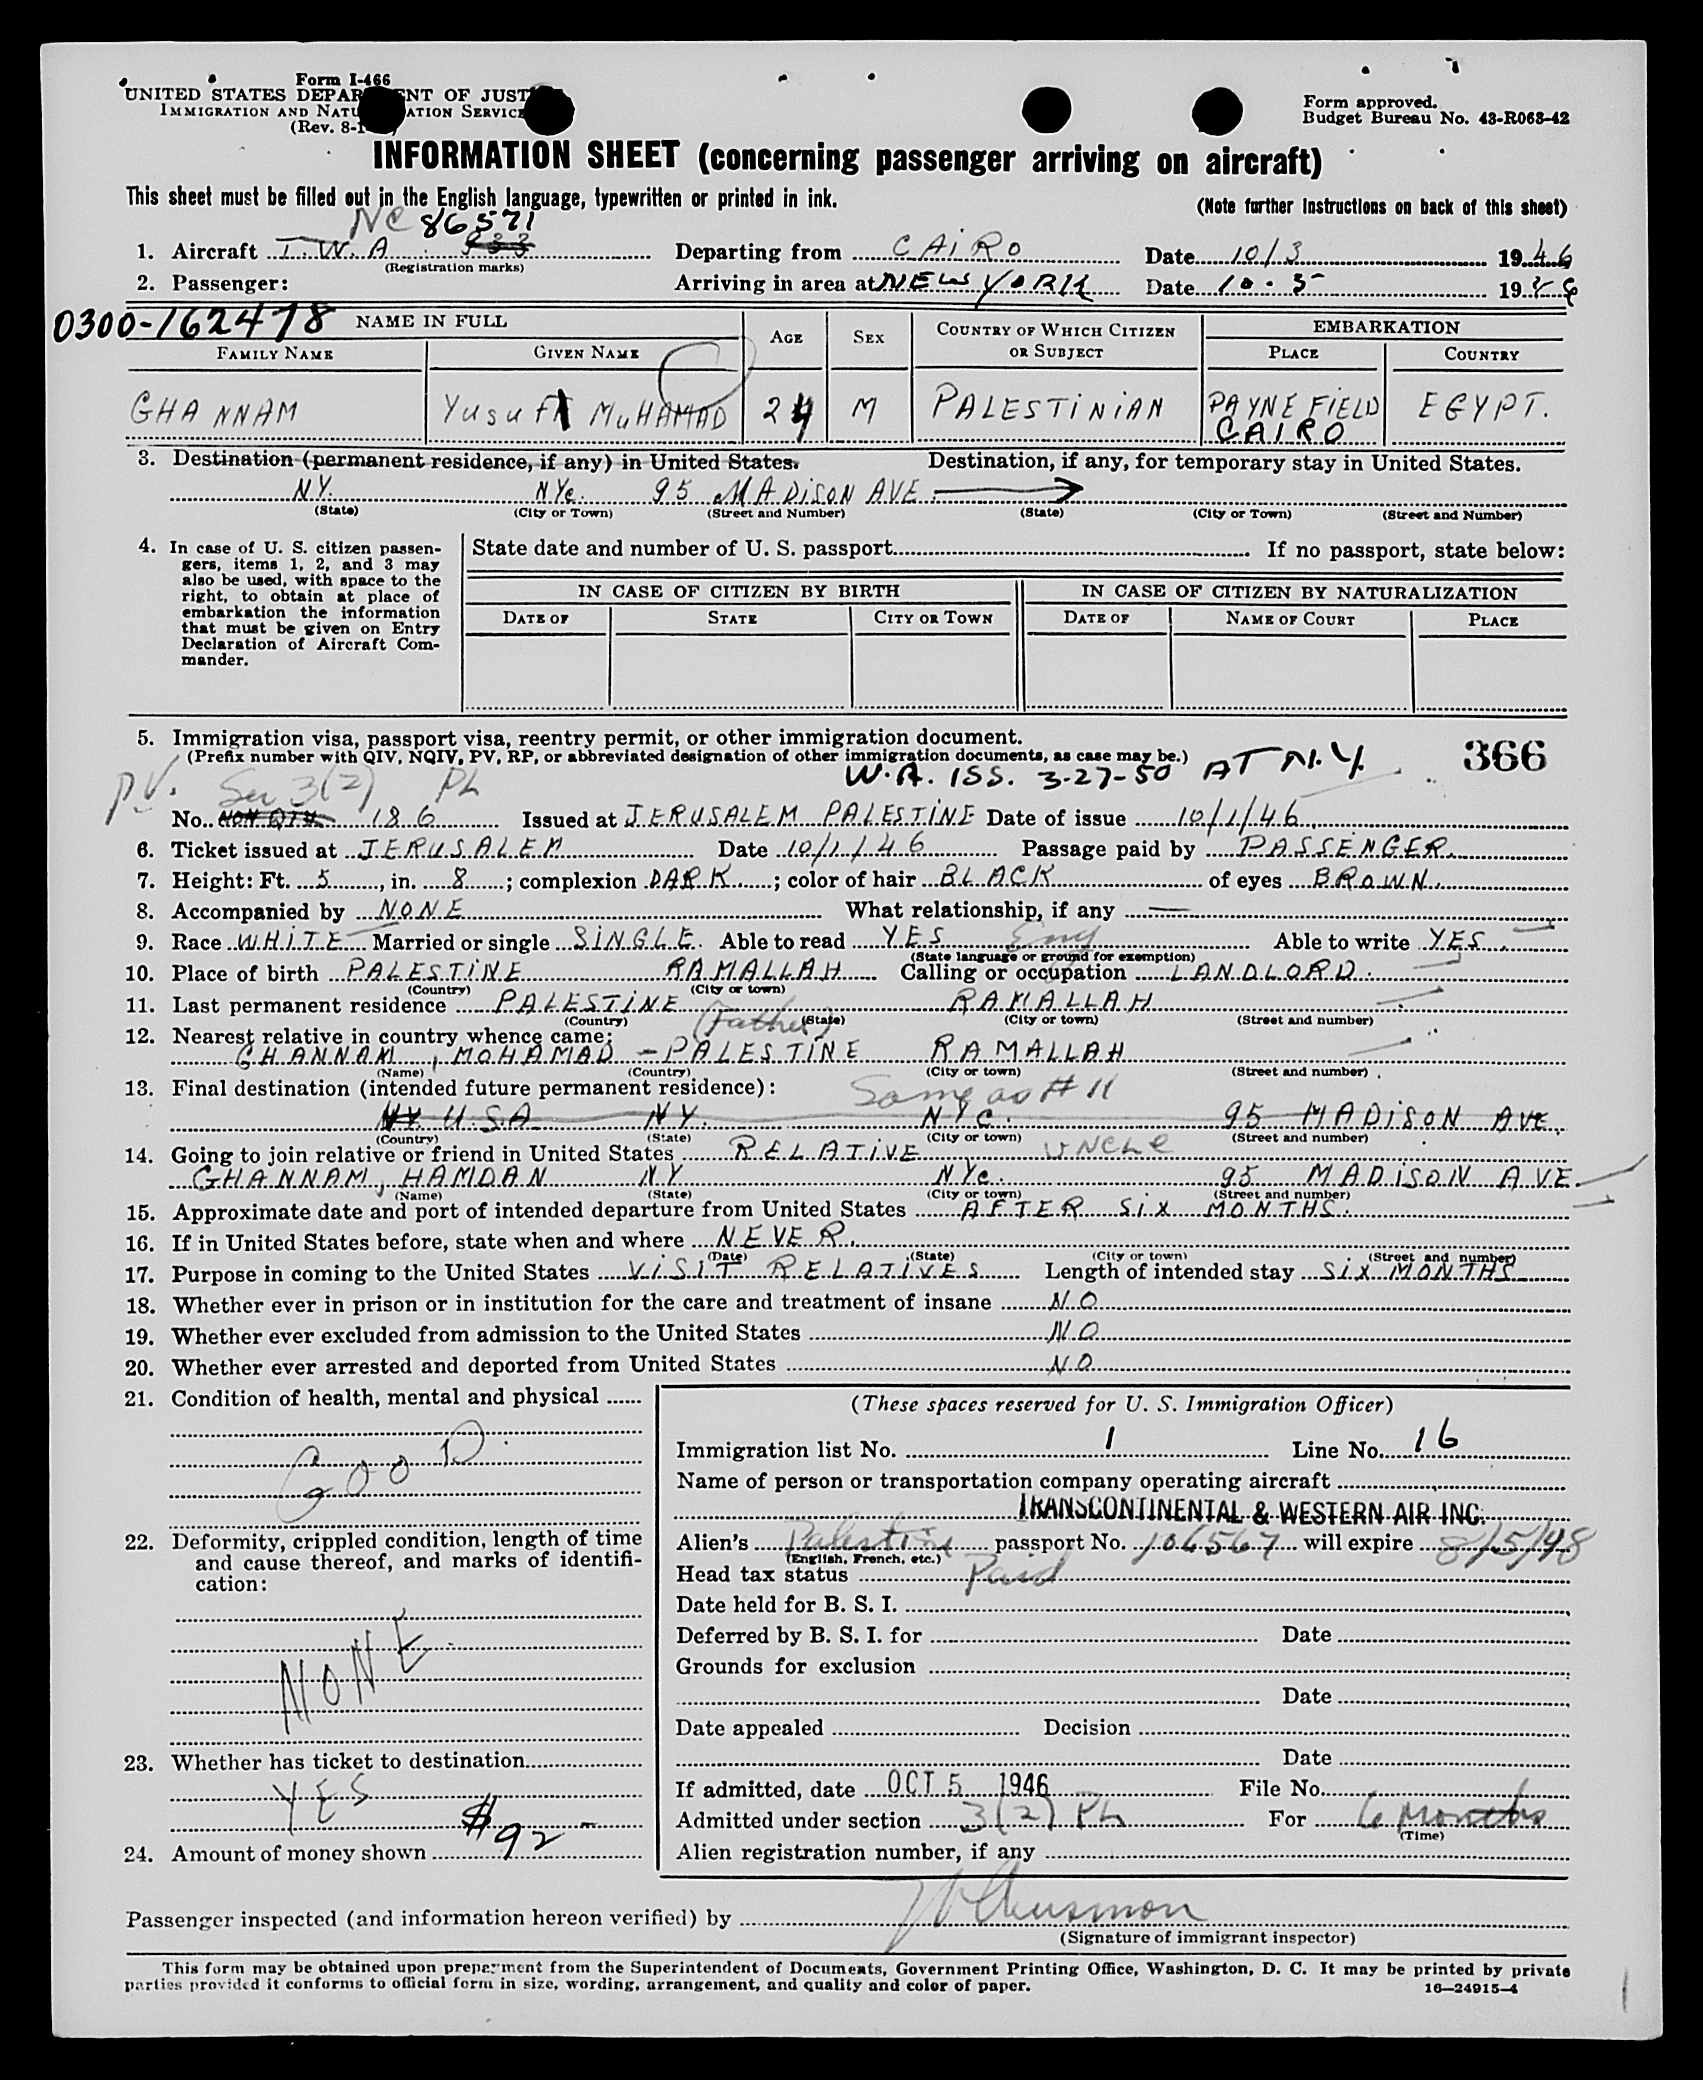 Form I-466
UNITED STATES DEPARTMENT OF JUSTICE
IMMIGRATION AND NATURALIZATION SERVICE
(Rev. 8-1
Form approved.
Budget Bureau No. 43-R068-42
INFORMATION SHEET (concerning passenger arriving on aircraft)
This sheet must be filled out in the English language, typewritten or printed in ink.
(Note further instructions on back of this sheet)
NC 86571
1. Aircraft T.W.A 533 Departing from CAIRO Date 10/3 1946
(Registration marks)
2. Passenger: Arriving in area at NEW YORK Date 10-5- 1946
0300-162478 NAME IN FULL AGE SEX COUNTRY OF WHICH CITIZEN OR SUBJECT EMBARKATION
FAMILY NAME GIVEN NAME PLACE COUNTRY
GHANNAM YUSUF MUHAMAD 24 M PALESTINIAN PAYNE FIELD CAIRO EGYPT.
3. Destination (permanent residence, if any) in United States. Destination, if any, for temporary stay in United States.
NY. NYC. 95 MADISON AVE.
(State) (City or Town) (Street and Number) (State) (City or Town) (Street and Number)
4. In case of U. S. citizen passengers, items 1, 2, and 3 may also be used, with space to the right, to obtain at place of embarkation the information that must be given on Entry Declaration of Aircraft Commander.
State date and number of U. S. passport If no passport, state below:
IN CASE OF CITIZEN BY BIRTH IN CASE OF CITIZEN BY NATURALIZATION
DATE OF STATE CITY OR TOWN DATE OF NAME OF COURT PLACE
5. Immigration visa, passport visa, reentry permit, or other immigration document.
(Prefix number with QIV, NQIV, PV, RP, or abbreviated designation of other immigration documents, as case may be.)
366
W.A. ISS. 3-27-50 AT N.Y.
PV. Sec 3(2) PL
No. NON QIV. 186 Issued at JERUSALEM PALESTINE Date of issue 10/1/46
6. Ticket issued at JERUSALEM Date 10/1/46 Passage paid by PASSENGER.
7. Height: Ft. 5, in. 8; complexion DARK; color of hair BLACK of eyes BROWN.
8. Accompanied by NONE What relationship, if any —
9. Race WHITE Married or single SINGLE. Able to read YES Eng Able to write YES
(State language or ground for exemption)
10. Place of birth PALESTINE RAMALLAH Calling or occupation LANDLORD.
(Country) (City or town)
11. Last permanent residence PALESTINE RAMALLAH
(Country) (State) (City or town) (Street and number)
12. Nearest relative in country whence came: (Father)
GHANNAM, MOHAMAD - PALESTINE RAMALLAH
(Name) (Country) (City or town) (Street and number)
13. Final destination (intended future permanent residence): Same as # 11
NY U.S.A NY. NYC. 95 MADISON AVE.
(Country) (State) (City or town) (Street and number)
14. Going to join relative or friend in United States RELATIVE UNCLE
GHANNAM, HAMDAN NY NYC. 95 MADISON AVE.
(Name) (State) (City or town) (Street and number)
15. Approximate date and port of intended departure from United States AFTER SIX MONTHS.
16. If in United States before, state when and where NEVER.
(Date) (State) (City or town) (Street and number)
17. Purpose in coming to the United States VISIT RELATIVES Length of intended stay SIX MONTHS
18. Whether ever in prison or in institution for the care and treatment of insane NO
19. Whether ever excluded from admission to the United States NO
20. Whether ever arrested and deported from United States NO
21. Condition of health, mental and physical
GOOD.
22. Deformity, crippled condition, length of time and cause thereof, and marks of identification:
NONE.
23. Whether has ticket to destination
YES
24. Amount of money shown $92-
(These spaces reserved for U. S. Immigration Officer)
Immigration list No. 1 Line No. 16
Name of person or transportation company operating aircraft
TRANSCONTINENTAL & WESTERN AIR INC.
Alien's Palestine passport No. 106567 will expire 8/5/48
(English, French, etc.)
Head tax status Paid
Date held for B. S. I.
Deferred by B. S. I. for Date
Grounds for exclusion
Date
Date appealed Decision
Date
If admitted, date OCT 5 1946 File No.
Admitted under section 3(2) PL For 6 Months
(Time)
Alien registration number, if any
Passenger inspected (and information hereon verified) by
(Signature of immigrant inspector)
This form may be obtained upon prepayment from the Superintendent of Documents, Government Printing Office, Washington, D. C. It may be printed by private
parties provided it conforms to official form in size, wording, arrangement, and quality and color of paper.
16—24915-4